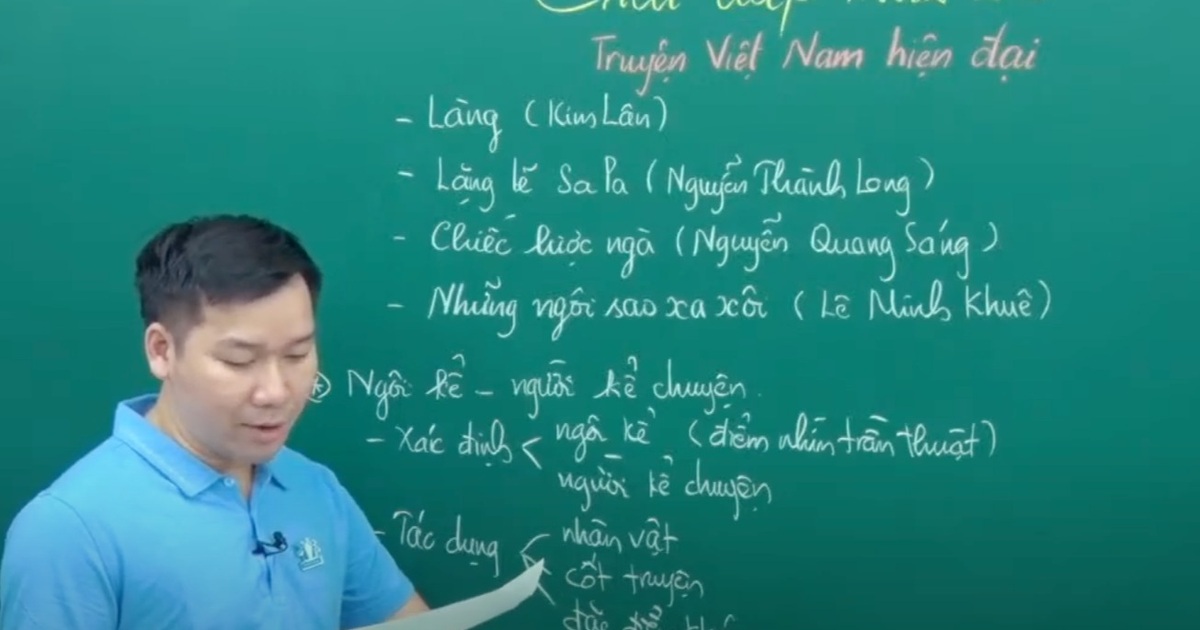 Truyện Việt Nam hiện đại
- Làng (Kim Lân)
- Lặng lẽ Sa Pa (Nguyễn Thành Long)
- Chiếc lược ngà (Nguyễn Quang Sáng)
- Những ngôi sao xa xôi (Lê Minh Khuê)
Ngôi kể - người kể chuyện.
- Xác định < ngôi kể (điểm nhìn trần thuật)
người kể chuyện
- Tác dụng < nhân vật
cốt truyện